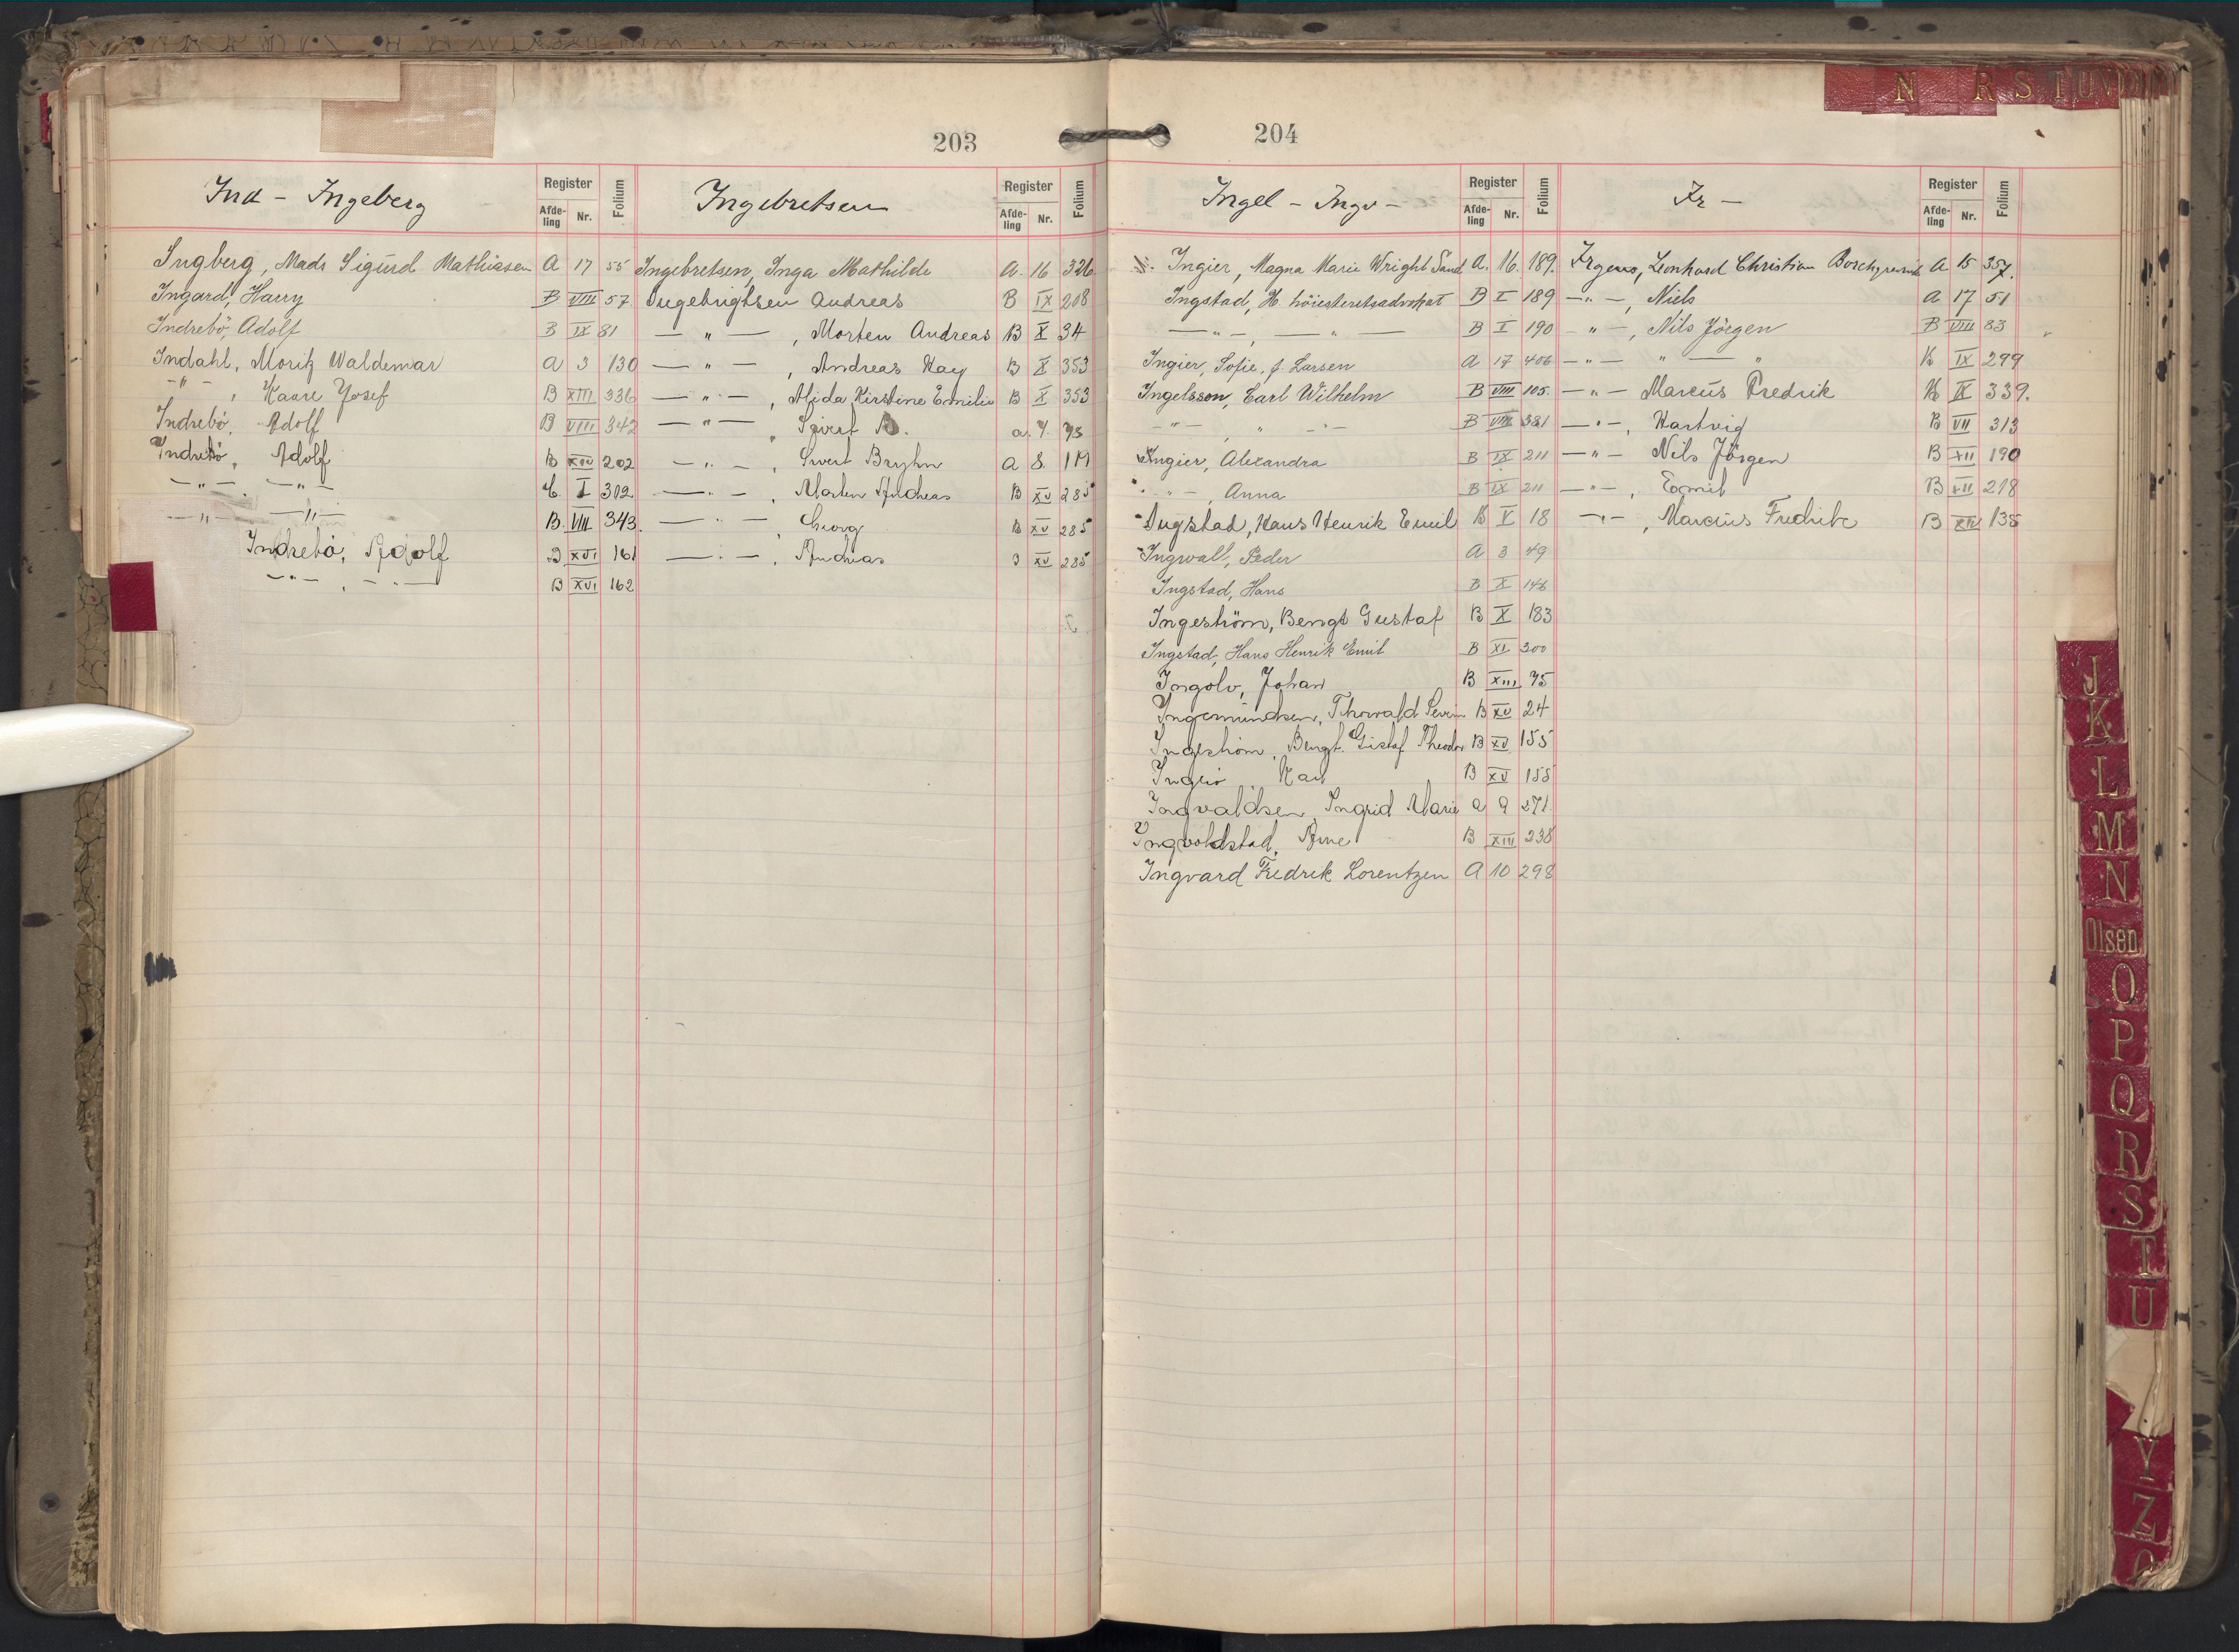 203
Ind - Ingeberg
Register
Afde-
ling
Nr.
Folium
Ingberg, Mads Sigurd Mathiasen A 17 55
Ingard, Harry B VIII 57
Indrebö, Adolf B IX 81
Indahl, Moritz Waldemar A 3 130
-"- , Kaare Josef B XIII 336
Indrebö, Adolf B VIII 342
Indrebö, Adolf B XIV 202
-"- , -"- C. I 302
-"- -"- B. VIII 343.
Indrebö, Adolf B XVI 161
-"- , -"- B XVI 162
Ingebretsen
Register
Afde-
ling
Nr.
Folium
Ingebretsen, Inga Mathilde A. 16 326
Ingebrigtsen Andreas B IX 208
-"- , Morten Andreas B X 34
-"- , Andreas Kay B X 353
-"- , Alida Kirstine Emilie B X 353
-"- , Sivert B. a. 7. 93
-"- , Sivert Bryhn A 8. 119
-"- , Morten Andreas B XV 285
-"- , Georg B XV 285
-"- , Andreas B XV 285
204
Ingel - Ingv -
Register
Afde-
ling
Nr.
Folium
Ingier, Magna Marie Wright Sand A. 16. 189.
Ingstad, H. höiesteretsadvokat B I 189
-"-, -"- B I 190
Ingier, Sofie, f. Larsen A 17 406
Ingelsson, Carl Wilhelm B VIII 105.
-"- , -"- B VIII 381
Ingier, Alexandra B IX 211
-"- , Anna B IX 211
Ingstad, Hans Henrik Emil B V 18
Ingwall, Peder A 3 49
Ingstad, Hans B X 146
Ingeström, Bengt Gustaf B X 183
Ingstad, Hans Henrik Emil B XI 300
Ingolv, Johan B XIII 95
Ingemundsen, Thorvald Severin B XV 24
Ingeström, Bengt Gustaf Theodor B XV 155
Kay B XV 155
Ingvaldsen, Ingrid Marie a 9 271.
Ingvoldstad, Arne B XIII 238
Ingvard Fredrik Lorentzen A 10 298
Ir -
Register
Afde-
ling
Nr.
Folium
Irgens, Leonhard Christian Borchgrevink A 15 357.
-"-, Niels A 17 51
-"-, Nils Jörgen B VIII 83
-"- " - " B IX 299
-"- Marcus Fredrik B IX 339.
-"-, Hartvig B VII 313
-"- Nils Jörgen B XII 190
-"-, Esmil B XII 218
-"-, Marcus Fredrik B XIV 135
N R S T U V
J
K
L
M
N
Olsen
O
P
Q
R
S
T
U
Y
Z